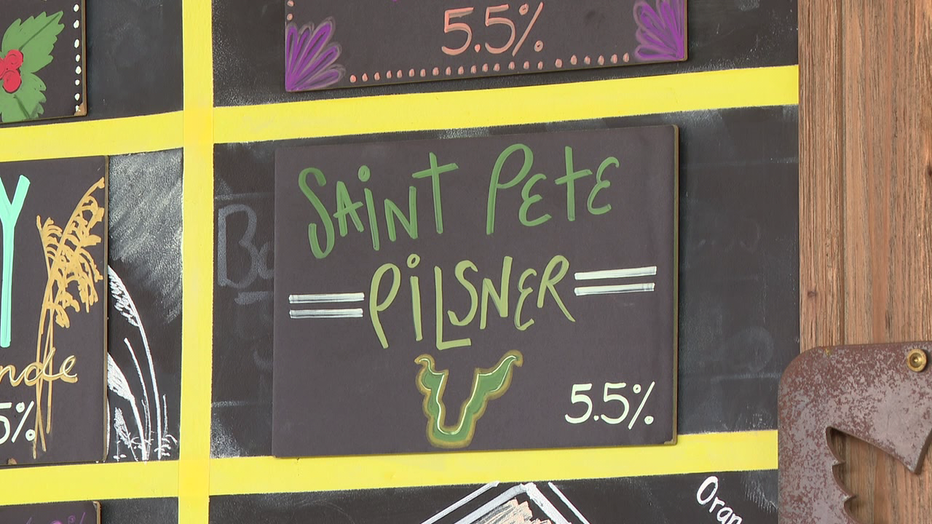 5.5%
SAINT PETE
PILSNER
5.5%
Y
nde
5%
Ba
Oran